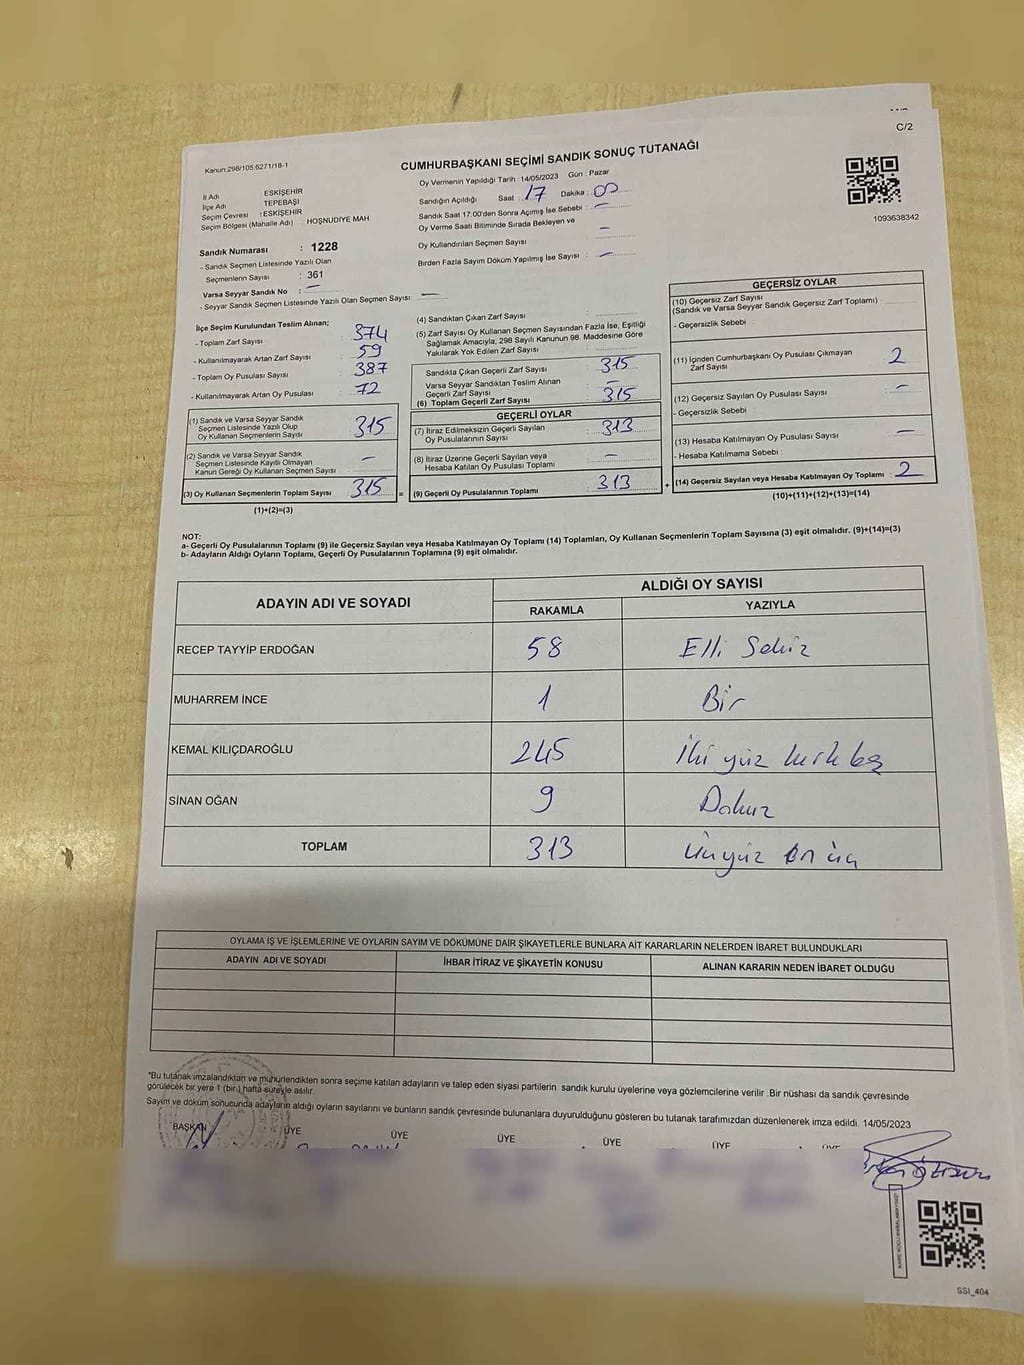 C/2
Kanun:298/105,6271/18-1
CUMHURBAŞKANI SEÇİMİ SANDIK SONUÇ TUTANAĞI
Oy Vermenin Yapıldığı Tarih :14/05/2023 Gün : Pazar
İl Adı : ESKİŞEHİR
İlçe Adı : TEPEBAŞI
Seçim Çevresi : ESKİŞEHİR
Seçim Bölgesi (Mahalle Adı) : HOŞNUDİYE MAH
Sandığın Açıldığı Saat : 17 Dakika : 00
Sandık Saat 17:00'den Sonra Açımış İse Sebebi : —
Oy Verme Saati Bitiminde Sırada Bekleyen ve
Oy Kullandırılan Seçmen Sayısı : —
Birden Fazla Sayım Döküm Yapılmış İse Sayısı : —
1093638342
Sandık Numarası : 1228
- Sandık Seçmen Listesinde Yazılı Olan
Seçmenlerin Sayısı : 361
Varsa Seyyar Sandık No : —
- Seyyar Sandık Seçmen Listesinde Yazılı Olan Seçmen Sayısı: —
İlçe Seçim Kurulundan Teslim Alınan;
- Toplam Zarf Sayısı : 374
- Kullanılmayarak Artan Zarf Sayısı : 59
- Toplam Oy Pusulası Sayısı : 387
- Kullanılmayarak Artan Oy Pusulası : 72
(1) Sandık ve Varsa Seyyar Sandık
Seçmen Listesinde Yazılı Olup
Oy Kullanan Seçmenlerin Sayısı : 315
(2) Sandık ve Varsa Seyyar Sandık
Seçmen Listesinde Kayıtlı Olmayan
Kanun Gereği Oy Kullanan Seçmen Sayısı : —
(3) Oy Kullanan Seçmenlerin Toplam Sayısı : 315 =
(1)+(2)=(3)
(4) Sandıktan Çıkan Zarf Sayısı :
(5) Zarf Sayısı Oy Kullanan Seçmen Sayısından Fazla İse, Eşitliği
Sağlamak Amacıyla, 298 Sayılı Kanunun 98. Maddesine Göre
Yakılarak Yok Edilen Zarf Sayısı :
Sandıkta Çıkan Geçerli Zarf Sayısı : 315
Varsa Seyyar Sandıktan Teslim Alınan
Geçerli Zarf Sayısı : —
(6) Toplam Geçerli Zarf Sayısı : 315
GEÇERLİ OYLAR
(7) İtiraz Edilmeksizin Geçerli Sayılan
Oy Pusulalarının Sayısı : 313
(8) İtiraz Üzerine Geçerli Sayılan veya
Hesaba Katılan Oy Pusulası Toplamı : —
(9) Geçerli Oy Pusulalarının Toplamı : 313 +
GEÇERSİZ OYLAR
(10) Geçersiz Zarf Sayısı
(Sandık ve Varsa Seyyar Sandık Geçersiz Zarf Toplamı) :
- Geçersizlik Sebebi :
(11) İçinden Cumhurbaşkanı Oy Pusulası Çıkmayan
Zarf Sayısı : 2
(12) Geçersiz Sayılan Oy Pusulası Sayısı : —
- Geçersizlik Sebebi :
(13) Hesaba Katılmayan Oy Pusulası Sayısı : —
- Hesaba Katılmama Sebebi :
(14) Geçersiz Sayılan veya Hesaba Katılmayan Oy Toplamı : 2
(10)+(11)+(12)+(13)=(14)
NOT:
a- Geçerli Oy Pusulalarının Toplamı (9) ile Geçersiz Sayılan veya Hesaba Katılmayan Oy Toplamı (14) Toplamları, Oy Kullanan Seçmenlerin Toplam Sayısına (3) eşit olmalıdır. (9)+(14)=(3)
b- Adayların Aldığı Oyların Toplamı, Geçerli Oy Pusulalarının Toplamına (9) eşit olmalıdır.
ADAYIN ADI VE SOYADI ALDIĞI OY SAYISI
RAKAMLA YAZIYLA
RECEP TAYYİP ERDOĞAN 58 Elli Sekiz
MUHARREM İNCE 1 Bir
KEMAL KILIÇDAROĞLU 245 İki yüz kırk beş
SİNAN OĞAN 9 Dokuz
TOPLAM 313 Üçyüz on üç
OYLAMA İŞ VE İŞLEMLERİNE VE OYLARIN SAYIM VE DÖKÜMÜNE DAİR ŞİKAYETLERLE BUNLARA AİT KARARLARIN NELERDEN İBARET BULUNDUKLARI
ADAYIN ADI VE SOYADI İHBAR İTİRAZ VE ŞİKAYETİN KONUSU ALINAN KARARIN NEDEN İBARET OLDUĞU
*Bu tutanak imzalandıktan ve mühürlendikten sonra seçime katılan adayların ve talep eden siyasi partilerin sandık kurulu üyelerine veya gözlemcilerine verilir .Bir nüshası da sandık çevresinde
görülecek bir yere 1 (bir) hafta süreyle asılır.
Sayım ve döküm sonucunda adayların aldığı oyların sayılarını ve bunların sandık çevresinde bulunanlara duyurulduğunu gösteren bu tutanak tarafımızdan düzenlenerek imza edildi. 14/05/2023
BAŞKAN ÜYE ÜYE ÜYE ÜYE ÜYE ÜYE
SSI_404